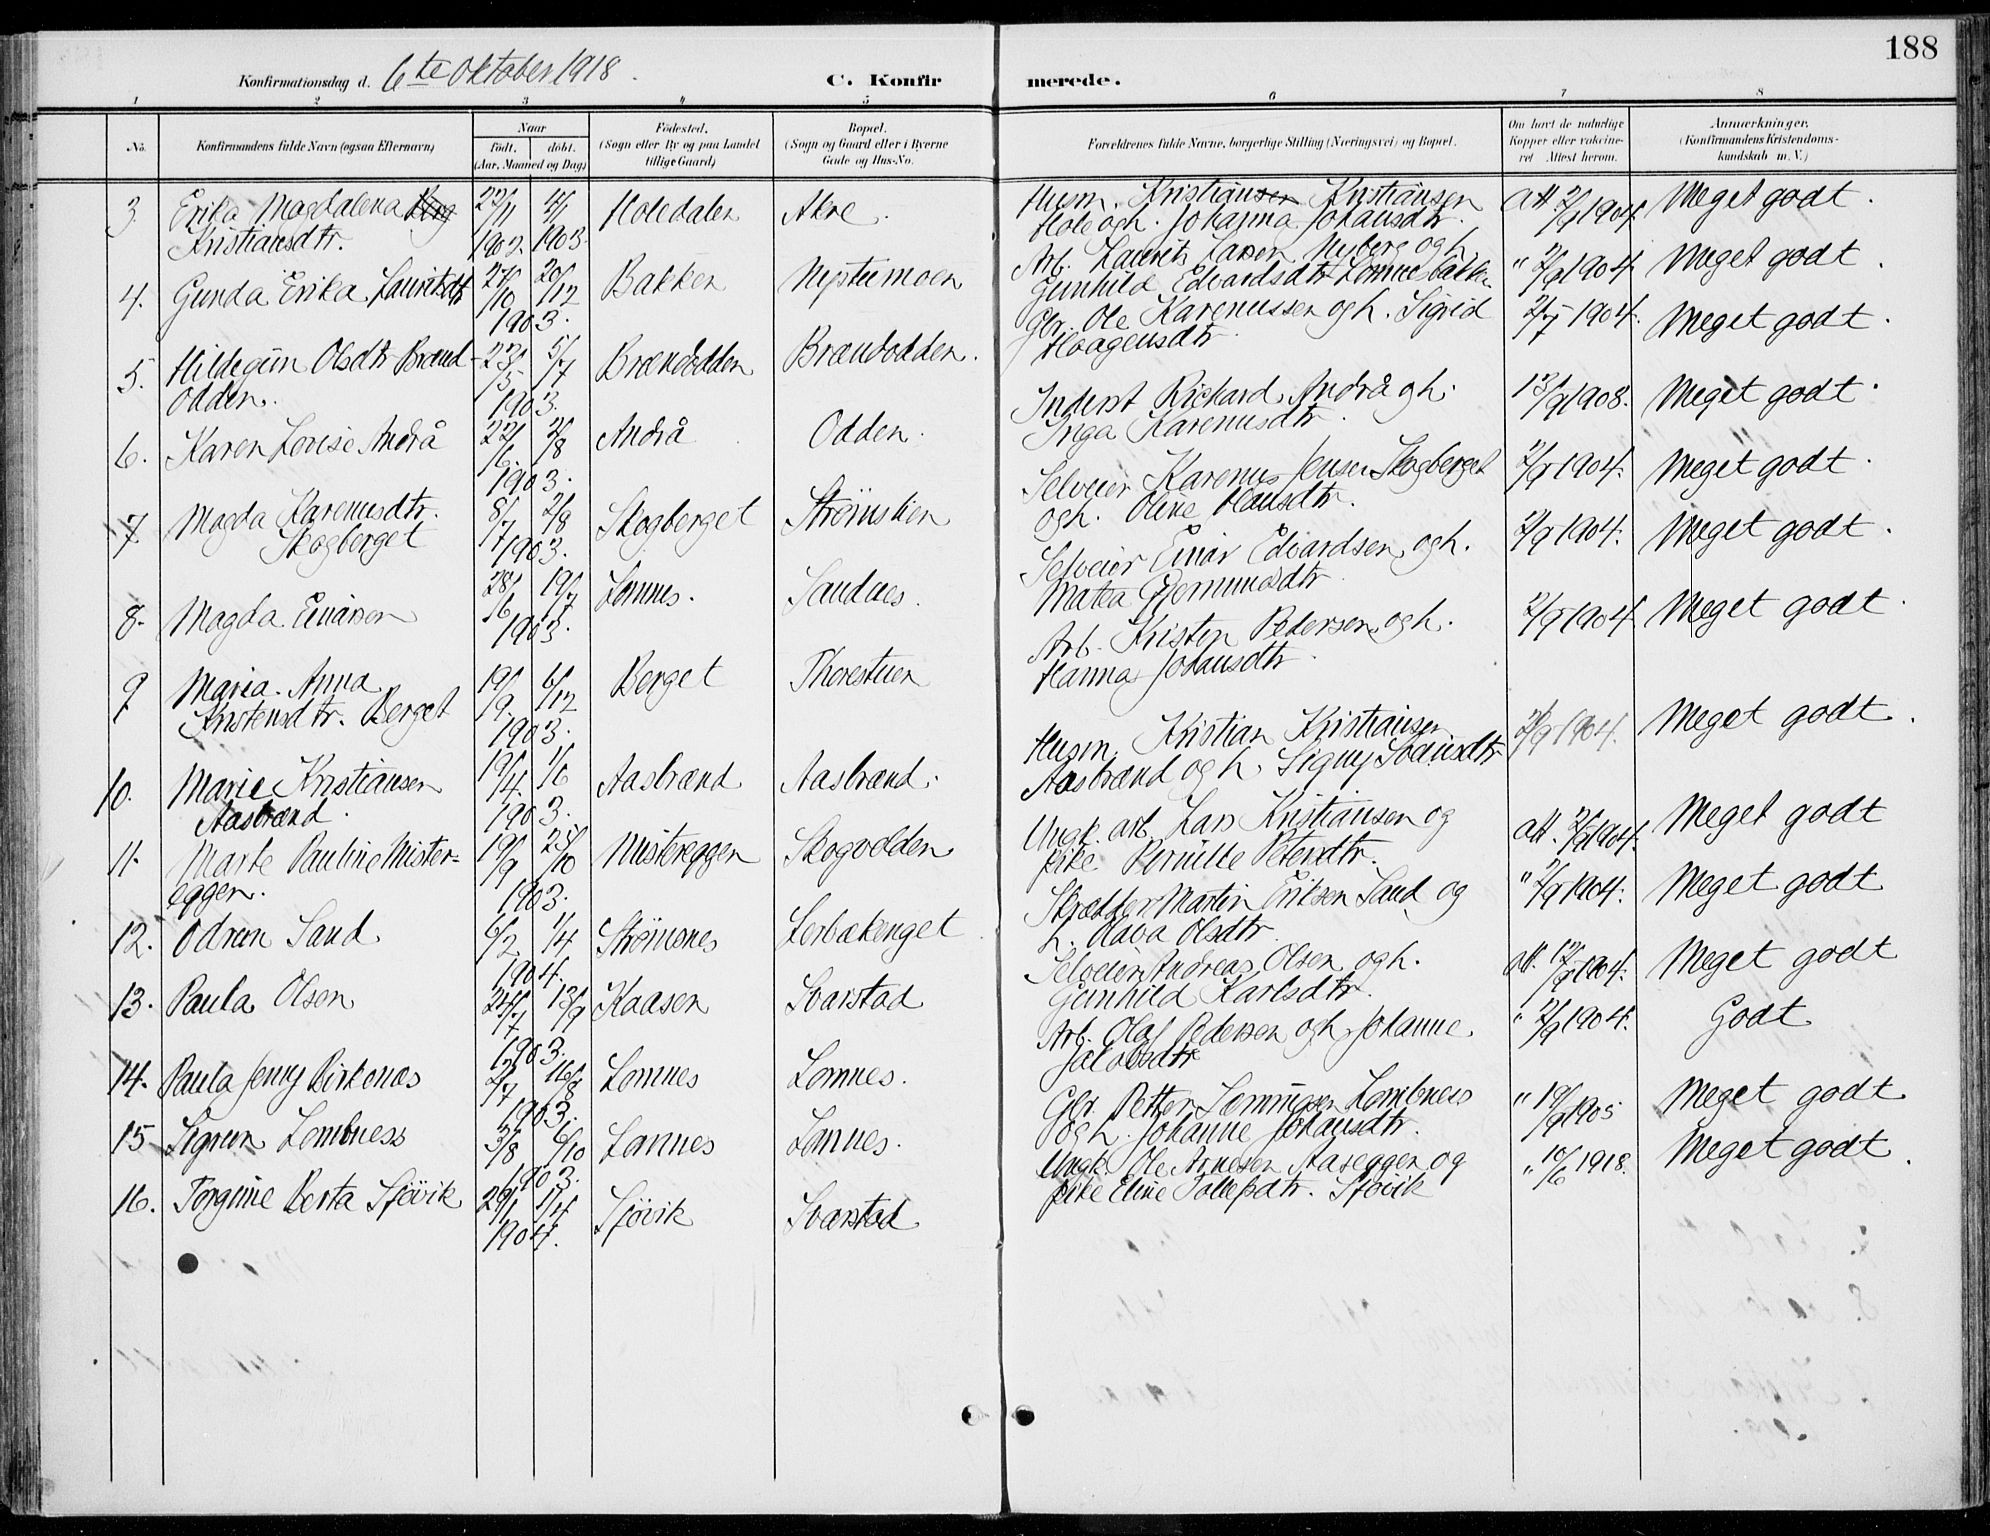 188
Konfirmationsdag d. 6te Oktober 1918.
C. Konfirmerede.
1 2 3 4 5 6 7 8
No.
Konfirmandens fulde Navn (ogsaa Efternavn)
Naar
født. døbt.
(Aar, Maaned og Dag)
Fødested.
(Sogn eller By og paa Landet
tillige Gaard)
Bopæl.
(Sogn og Gaard eller i Byerne
Gade og Hus-No.
Forældrenes fulde Navne, borgerlige Stilling (Næringsvei) og Bopæl.
Om havt de naturlige
Kopper eller vakcine-
ret Attest herom.
Anmærkninger.
(Konfirmandens Kristendoms-
kundskab m. V.)
3. Erika Magdalena Berg Holedalen Akre. Husm. Kristiansen Kristiansen att 2/9 1904 Meget godt.
Kristiansdtr. 1902. 1903. Hole og h. Johanna Johansdtr.
4. Gunda Erika Lauritsdtr 27/10 20/12 Bakken Neptumoen Arb. Laurits Larsen Nyberg og h. " 2/9 1904 Meget godt.
1903. Gunhild Edvardsdtr Lomnesbakken
5. Hildegun Olsdtr Brænd- 23/5 5/7 Brændodden Brændodden. Gbr. Ole Karenussen og h. Sigrid 2/9 1904. Meget godt.
odden. 1903. Haagensdtr.
6. Karen Louise Andrå 22/6 2/8 Andrå Odden. Inderst Richard Andrå og h. 13/9 1908. Meget godt.
1903. Inga Karenusdtr.
7. Magda Karenusdtr. 8/7 2/8 Skogberget Strømslien Selveier Karenus Jensen Skogberget 2/9 1904. Meget godt.
Skogberget 1903. og h. Oline Hansdtr.
8. Magda Einarsen 28/6 19/7 Lomnes. Sandnes. Selveier Einar Edvardsen og h. 2/9 1904. Meget godt.
1903. Matea Gjermundsdtr
9. Maria Anna 19/9 6/12 Berget Thorestuen Arb. Kristen Pedersen og h. 2/9 1904 Meget godt.
Kristensdtr. Berget 1903. Hanna Johansdtr.
10. Marie Kristiansen 19/4 1/6 Aasbrænd Aasbrænd. Husm. Kristian Kristiansen 2/9 1904. Meget godt.
Aasbrænd. 1903. Aasbrænd og h. Signy Svensdtr
11. Marte Pauline Mister- 19/9 25/10 Mistereggen Skogvolden Ungk. arb. Lars Kristiansen og att. 2/9 1904. Meget godt
eggen. 1903. pike Pernille Petersdtr.
12. Odrun Sand 6/2 1/4 Strømsnes Lerbækenget Skrædder Martin Eriksen Sand og " 2/9 1904. Meget godt
1904. h. Olava Olsdtr.
13. Paula Olsen 24/7 13/9 Kaasen Svarstad Selveier Andreas Olsen og h. att. 12/9 1904. Meget godt
1903. Gunhild Karlsdtr.
14. Paula Jenny Birkenæs 2/7 16/8 Lomnes Lomnes. Arb. Olaf Pedersen og h. Johanne " 2/9 1904. Godt
1903. Jakobsdtr
15 Sigrun Lombness 3/8 6/10 Lomnes Lomnes. Gbr. Petter Semmingsen Lombness " 19/9 1905 Meget godt
1903. og h. Johanne Johansdtr.
16. Torgine Berta Sjøvik 29/1 1/4 Sjøvik Svarstad Ungk. Ole Arnesen Aaseggen og " 10/6 1918. Meget godt.
1904. pike Eline Tollefsdtr. Sjøvik